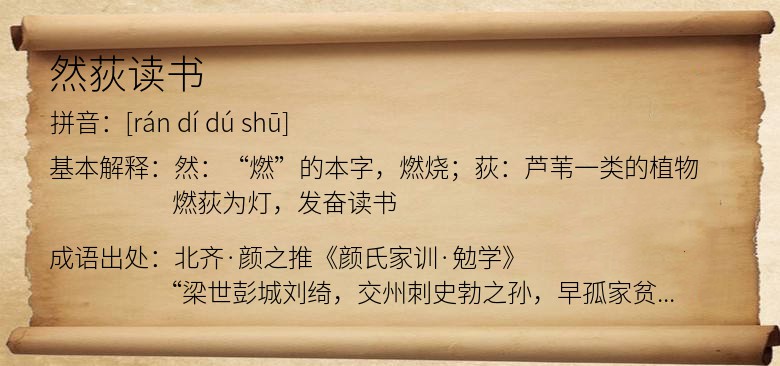 然荻读书
拼音：[rán dí dú shū]
基本解释：然：“燃”的本字，燃烧；荻：芦苇一类的植物
燃荻为灯，发奋读书
成语出处：北齐·颜之推《颜氏家训·勉学》
“梁世彭城刘绮，交州刺史勃之孙，早孤家贫...